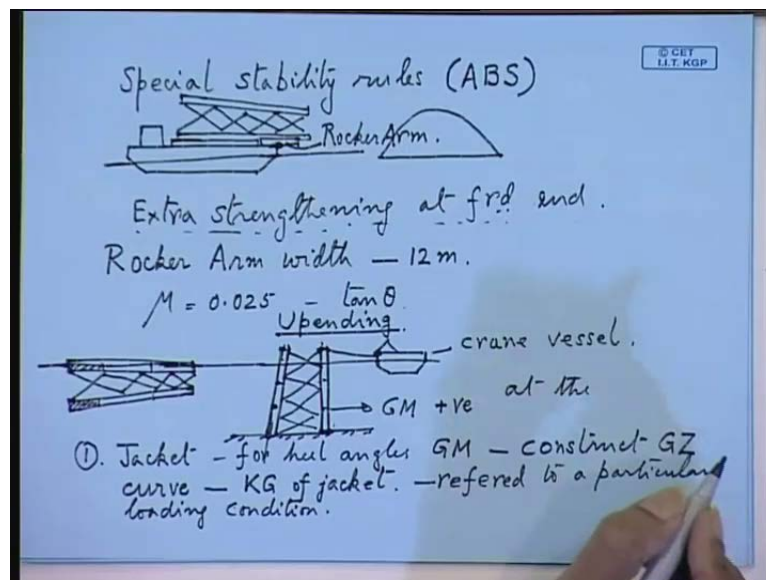 © CET
I.I.T. KGP
Special stability rules (ABS)
Rocker Arm.
Extra strengthening at frd end.
Rocker Arm width — 12 m.
μ = 0.025 - tan θ
Upending.
crane vessel.
GM +ve at the
①. Jacket - for heel angles GM - construct GZ
curve - KG of jacket. - refered to a particular
loading condition.